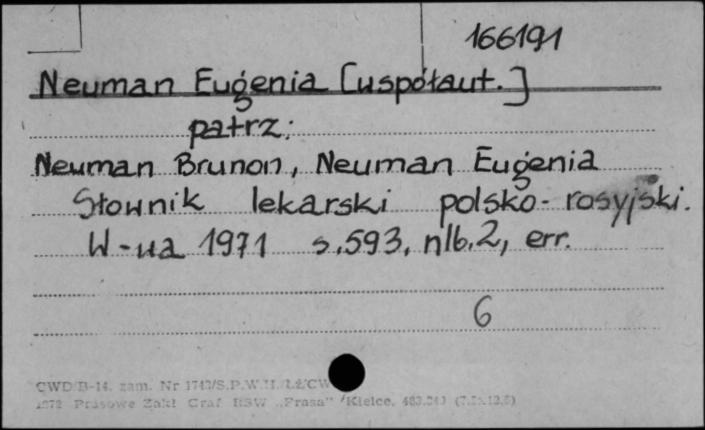 166191
Neuman Eugenia [współaut.]
patrz:
Neuman Brunon, Neuman Eugenia
Słownik lekarski polsko-rosyjski.
W-wa 1971 s.593, nlb.2, err.
6
CWD/B-14. zam. Nr 1742/S.P.W.H.
1972 Prasowe Zakł Graf RSW „Prasa" Kielce.